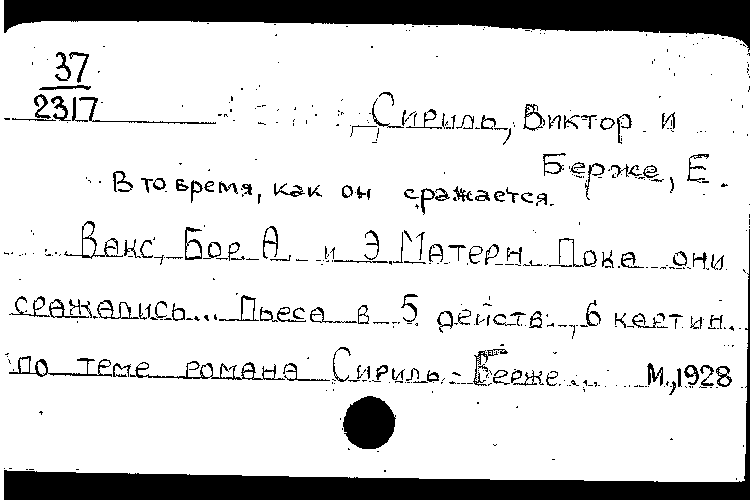 37
2317
Сириль, Виктор и
Берже, Е.
В то время, как он сражается.
Вакс, Бор. А. и Э. Матерн. Пока они
сражались... Пьеса в 5 действ., 6 картин.
по теме романа Сириль-Берже... М., 1928